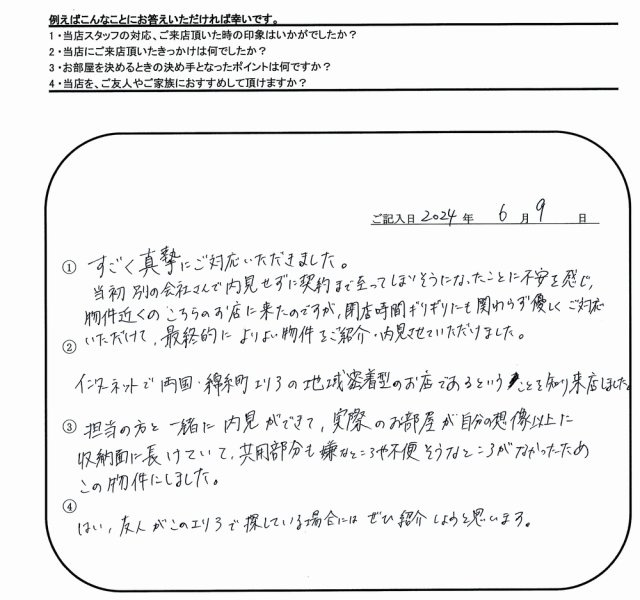 例えばこんなことにお答えいただければ幸いです。
1・当店スタッフの対応、ご来店頂いた時の印象はいかがでしたか?
2・当店にご来店頂いたきっかけは何でしたか?
3・お部屋を決めるときの決め手となったポイントは何ですか?
4・当店を、ご友人やご家族におすすめして頂けますか?
ご記入日 2024 年 6 月 9 日
① すごく真摯にご対応いただきました。
当初 別の会社さんで内見せずに契約まで至ってしまいそうになったことに不安を感じ、
物件近くのこちらのお店に来たのですが、閉店時間ギリギリにも関わらず優しくご対応
いただけて、最終的に よりよい物件をご紹介・内見させていただけました。
②
インターネットで両国・錦糸町エリアの地域密着型のお店であるということを知り来店しました。
③ 担当の方と一緒に内見ができて、実際のお部屋が自分の想像以上に
収納面に長けていて、共用部分も嫌なところや不便そうなところがなかったため
この物件にしました。
④
はい、友人がこのエリアで探している場合にはぜひ紹介しようと思います。